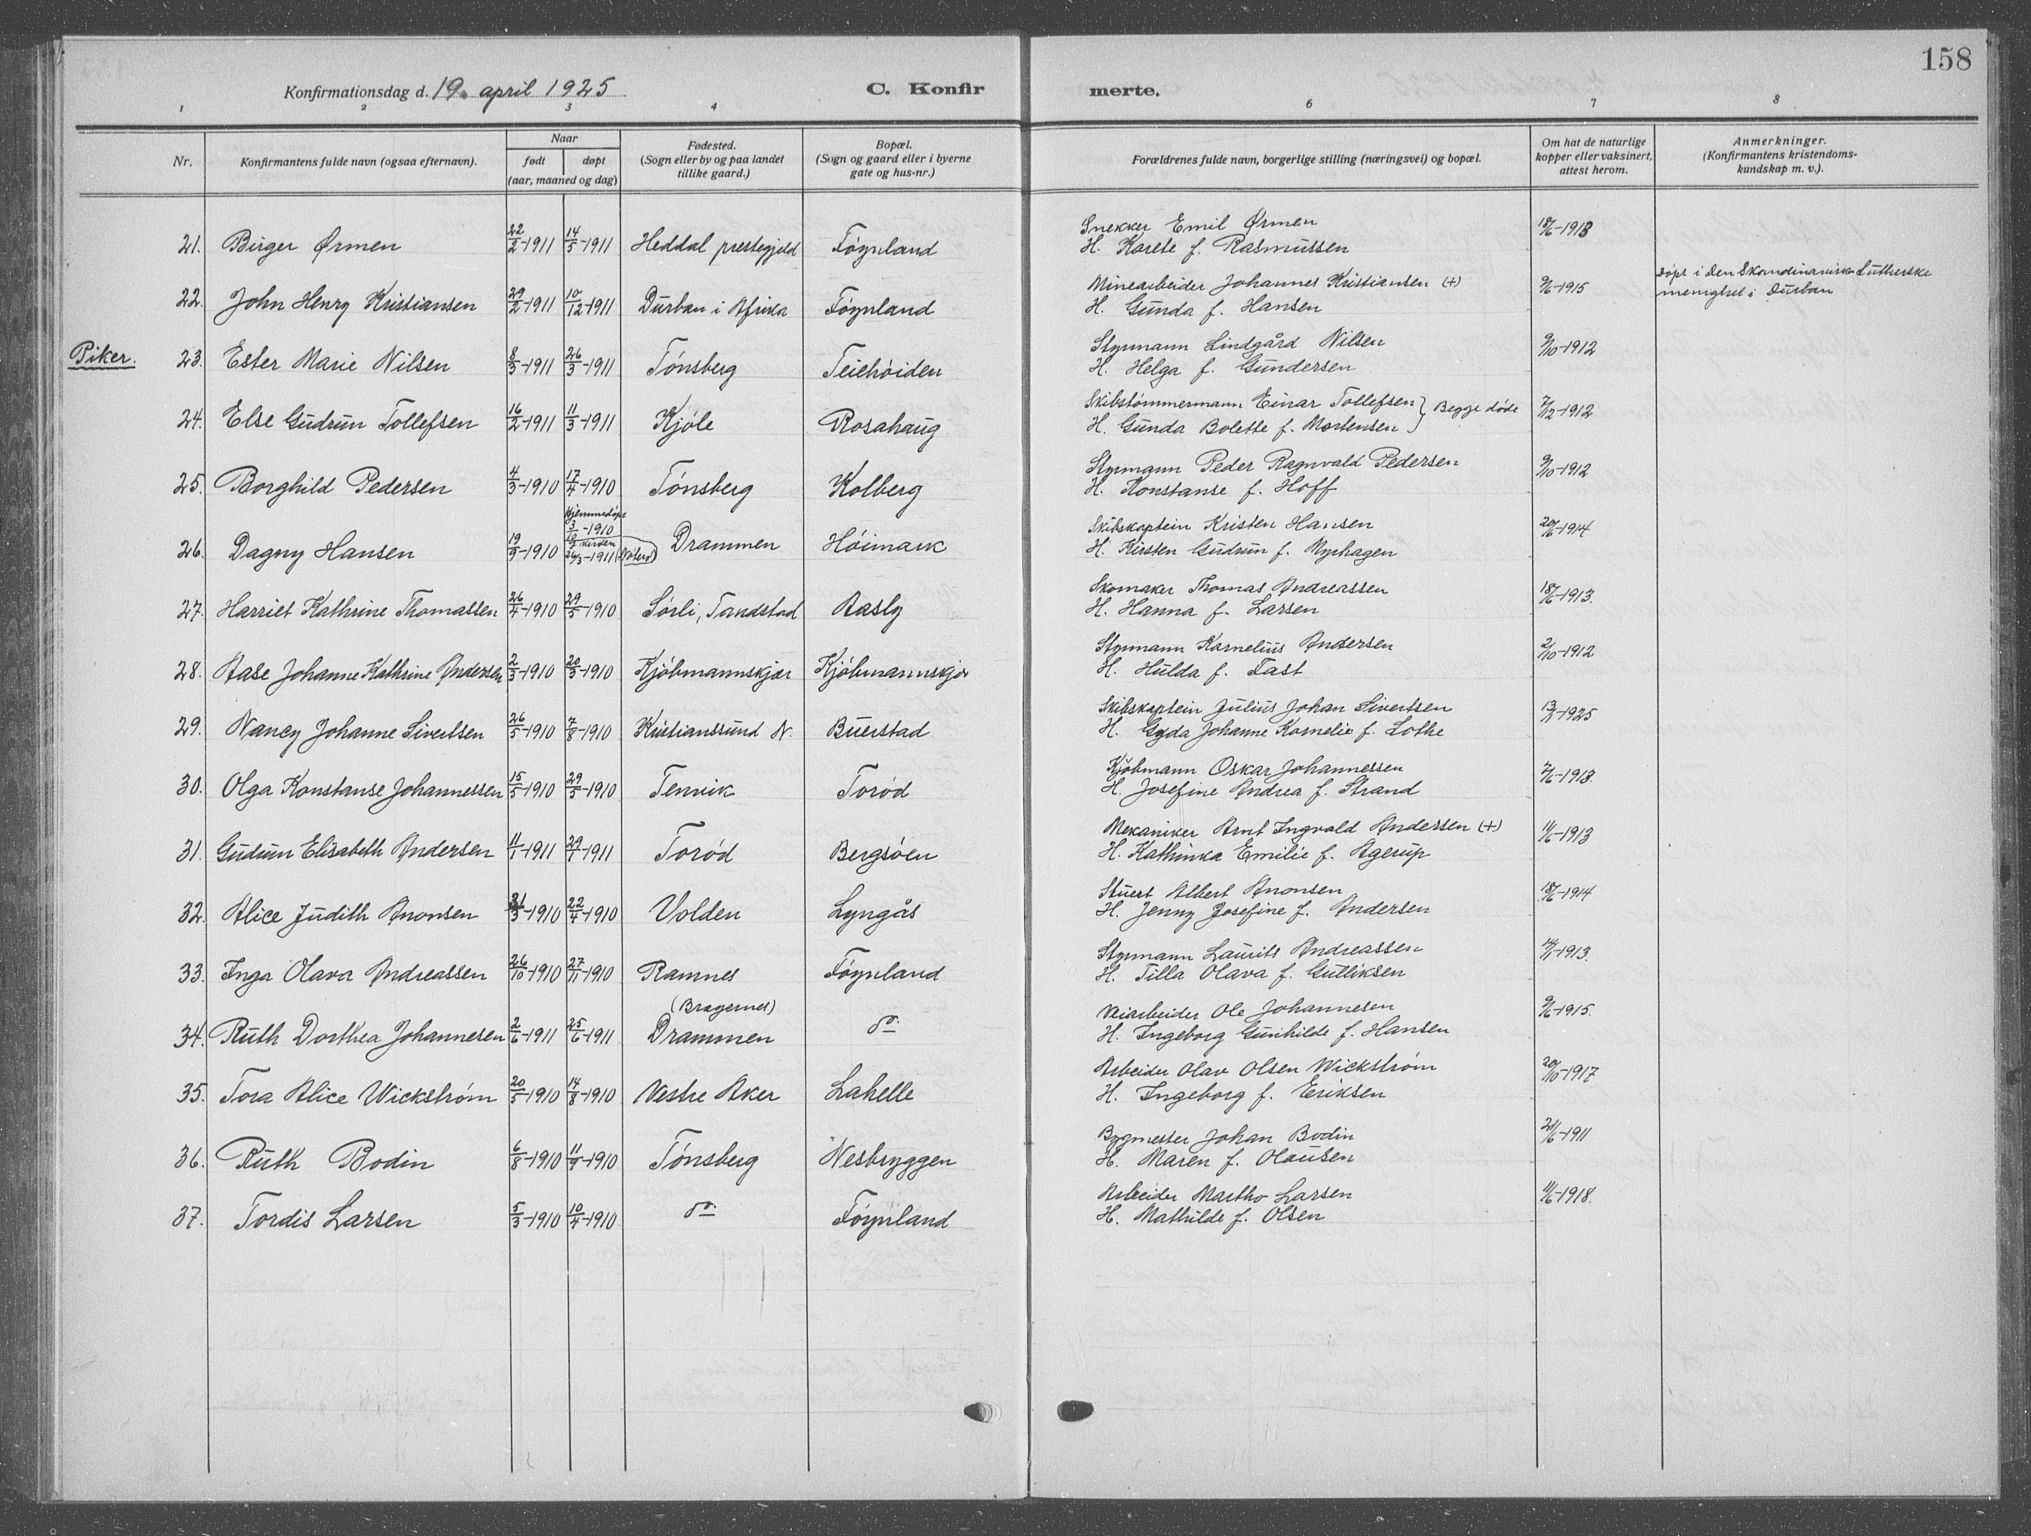 158
Konfirmationsdag d. 19. april 1925 C. Konfirmerte.
1 2 3 4 6 7 8
Nr. Konfirmantens fulde navn (ogsaa efternavn). Naar født døpt (aar, maaned og dag) Fødested. (Sogn eller by og paa landet tillike gaard.) Bopæl. (Sogn og gaard eller i byerne gate og hus-nr.) Forældrenes fulde navn, borgerlige stilling (næringsvei) og bopæl. Om hat de naturlige kopper eller vaksinert, attest herom. Anmerkninger. (Konfirmantens kristendomskundskap m. v.).
21. Birger Ørmen 22/2-1911 14/5-1911 Heddal prestegjeld Føynland Snekker Emil Ørmen 18/6-1918
H. Karete f. Rasmussen
22. John Henry Kristiansen 29/2-1911 10/12-1911 Durban i Afrika Føynland Minearbeider Johannes Kristiansen (+) 9/6-1915 Døpt i den Skandinavisk Lutherske
H. Gunda f. Hansen menighet i Durban
Piker. 23. Ester Marie Nilsen 8/3-1911 26/3-1911 Tønsberg Teiehøiden Styrmann Lindgård Nilsen 9/10-1912
H. Helga f. Gundersen
24. Else Gudrun Tollefsen 16/2-1911 11/3-1911 Kjøle Rosahaug Skibstømmermann Einar Tollefsen } Begge døde 7/12-1912
H. Gunda Bolette f. Mortensen
25. Borghild Pedersen 4/3-1910 17/4-1910 Tønsberg Kolberg Styrmann Peder Ragnvald Pedersen 9/10-1912
H. Konstanse f. Hoff
26. Dagny Hansen 19/3-1910 Hjemmedøpt -1910 kirken 26/3-1911 Drammen Høimark Skibskaptein Kristen Hansen 20/6-1914
H. Kirsten Gudrun f. Myrhagen
27. Harriet Kathrine Thomassen 26/4-1910 29/5-1910 Sørli, Tandstad Aasly Skomaker Thomas Andreassen 18/6-1913.
H. Hanna f. Larsen
28. Aase Johanne Kathrine Andersen 2/3-1910 20/3-1910 Kjøbmannskjær Kjøbmannskjær Styrmann Kornelius Andersen 2/10-1912
H. Hulda f. Fast
29. Nancy Johanne Sivertsen 26/5-1910 7/8-1910 Kristianssund N. Buerstad Skibskaptein Julius Johan Sivertsen 13/2-1925
H. Gyda Johanne Kornelie f. Lothe
30. Olga Konstanse Johannessen 15/5-1910 29/5-1910 Tenvik Torød Kjøbmann Oskar Johannessen -1918
H. Josefine Andrea f. Strand
31. Gudrun Elisabeth Andersen 11/1-1911 29/1-1911 Torød Bergsøen Mekaniker Arnt Ingvald Andersen (+) 11/6-1913
H. Kathinka Emilie f. Agerup
32. Alice Judith Anonsen 31/3-1910 22/4-1910 Volden Lyngås Stuert Albert Anonsen 18/6-1914
H. Jenny Josefine f. Andersen
33. Inga Olava Andreassen 26/10-1910 27/11-1910 Ramnes Føynland Styrmann Laurits Andreassen -1913.
H. Tilla Olava f. Gulliksen
(Bragernes)
34. Ruth Dorthea Johannesen 2/6-1911 25/6-1911 Drammen do. Veiarbeider Ole Johannesen 9/6-1915.
H. Ingeborg Gunhilde f. Hansen
35. Tora Alice Wickstrøm 20/5-1910 14/8-1910 Vestre Aker Lahelle Arbeider Olav Olsen Wickstrøm 20/10-1917
H. Ingeborg f. Eriksen
36. Ruth Bodin 6/8-1910 11/9-1910 Tønsberg Nesbryggen Bygmester Johan Bodin 21/6-1911
H. Maren f. Olausen
37. Tordis Larsen 5/3-1910 10/4-1910 do. Føynland Arbeider Martho Larsen 11/6-1918.
H. Mathilde f. Olsen